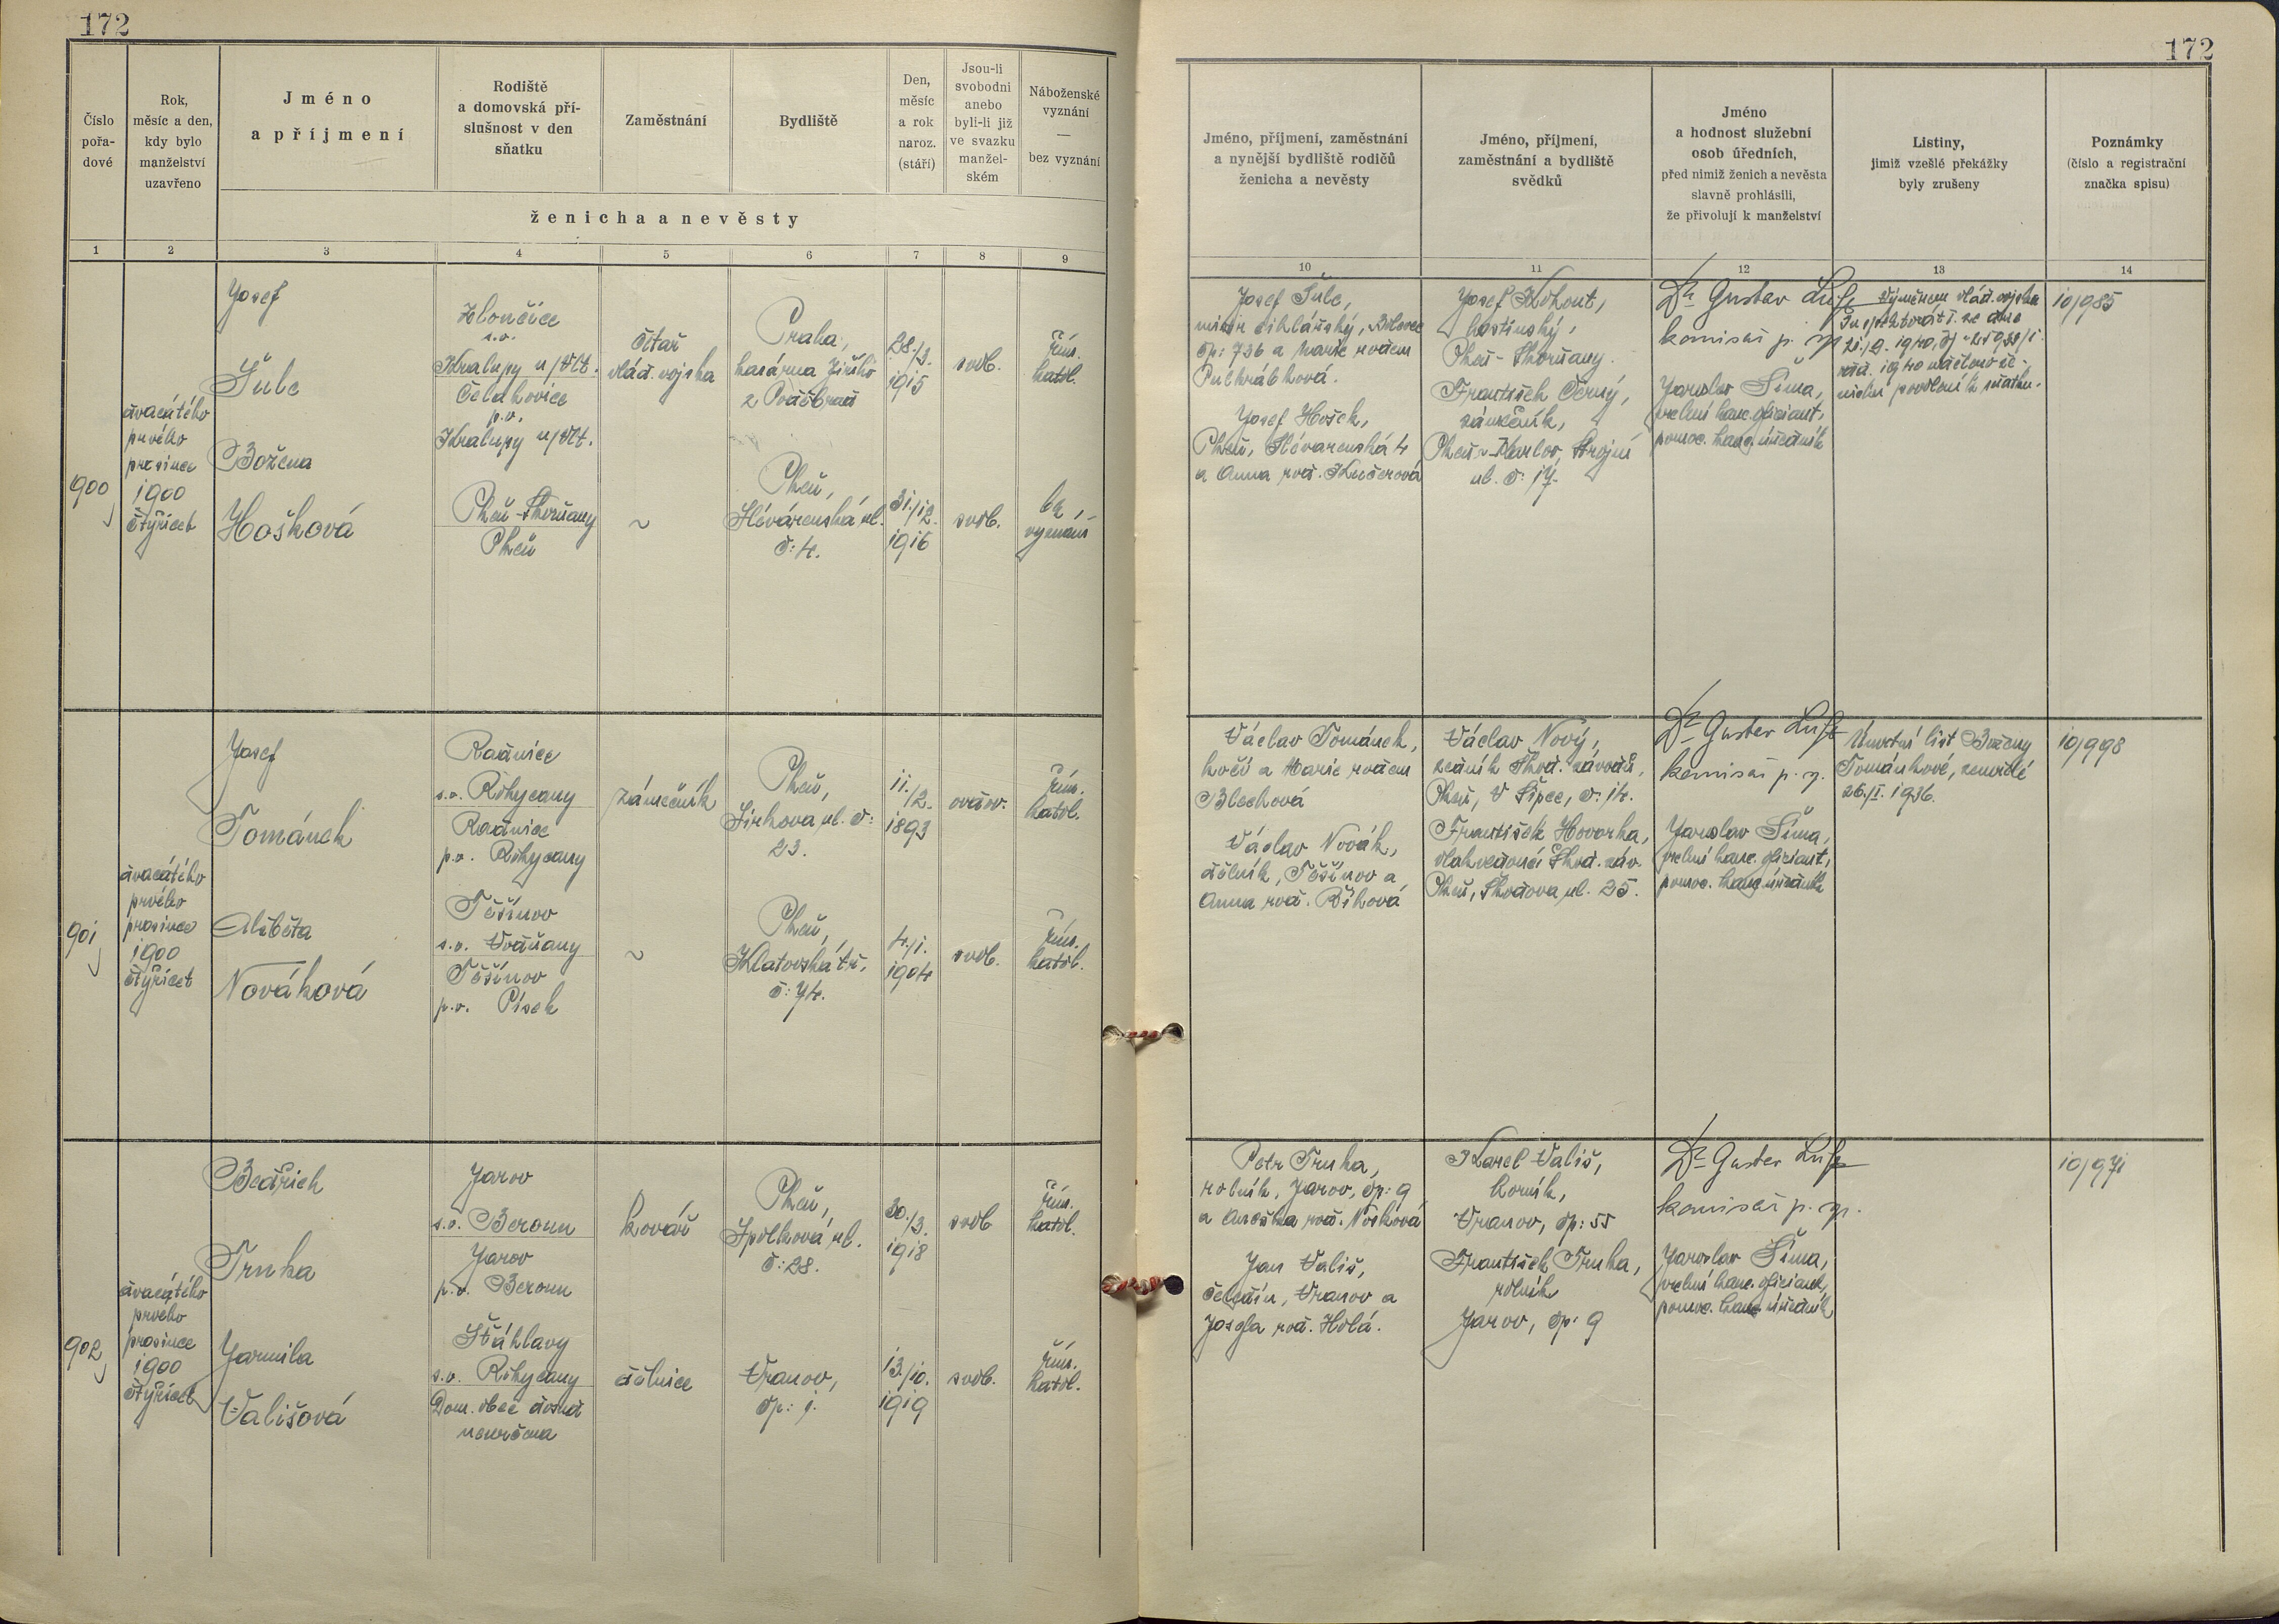 172
172
Číslo
pořa-
dové
Rok,
měsíc a den,
kdy bylo
manželství
uzavřeno
Jméno
a příjmení
Rodiště
a domovská pří-
slušnost v den
sňatku
Zaměstnání
Bydliště
Den,
měsíc
a rok
naroz.
(stáří)
Jsou-li
svobodni
anebo
byli-li již
ve svazku
manžel-
ském
Náboženské
vyznání
—
bez vyznání
ženicha a nevěsty
Jméno, příjmení, zaměstnání
a nynější bydliště rodičů
ženicha a nevěsty
Jméno, příjmení,
zaměstnání a bydliště
svědků
Jméno
a hodnost služební
osob úředních,
před nimiž ženich a nevěsta
slavně prohlásili,
že přivolují k manželství
Listiny,
jimiž vzešlé překážky
byly zrušeny
Poznámky
(číslo a registrační
značka spisu)
1 2 3 4 5 6 7 8 9
10 11 12 13 14
900
dvacátého
prvého
prosince
1900
čtyřicet
Josef
Šulc
Božena
Hošková
s.o.
Kralupy n/Vlt.
Čelakovice
p.o.
Kralupy n/Vlt.
Plzeň-Skvrňany
Plzeň
četař
vlád. vojska
~
Praha,
kasárna Jiřího
z Poděbrad
Plzeň,
Slévárenská ul.
č: 4.
28./3.
1915
31./12.
1916
svob.
svob.
řím.
katol.
bez
vyznání
Josef Šulc,
mistr cihlářský,
čp: 736 a Marie rodem
Pulkrábková.
Josef Hošek,
Plzeň, Slévarenská 4
a Anna rod. Kučerová
Josef Kohout,
hostinský,
Plzeň-Skvrňany.
František Černý,
zámečník,
Plzeň-Karlov, Strojní
ul. č: 17.
Dr Gustav
komisař p. m.
Jaroslav Šíma,
kanc. oficiant,
pomoc. kanc. úředník
Výnosem vlád. vojska
Inspektorát 1. ze dne
povolení k sňatku.
10/985
901
dvacátého
prvého
prosince
1900
čtyřicet
Josef
Tománek
Alžběta
Nováková
Radnice
s.o. Rokycany
Radnice
p.o. Rokycany
Těšínov
s.o. Vodňany
Těšínov
p.o. Písek
zámečník
~
Plzeň,
Sirkova ul. č:
23.
Plzeň,
Klatovská tř.
č: 74.
11./2.
1893
4./1.
1904
ovdov.
svob.
řím.
katol.
řím.
katol.
Václav Tománek,
kočí a Marie rodem
Blechová
Václav Novák,
dělník, Těšínov a
Anna rod. Říhová
Václav Nový,
zedník Škod. závodů,
Plzeň, V Šipce, č: 14.
František Hovorka,
vlakvedoucí Škod. záv.
Plzeň, Škodova ul. 25.
Dr Gustav
komisař p. m.
Jaroslav Šíma,
kanc. oficiant,
pomoc. kanc. úředník
Úmrtní list Boženy
Tománkové, zemřelé
26./I. 1936.
10/998
902
dvacátého
prvého
prosince
1900
čtyřicet
Bedřich
Trnka
Jarmila
Vališová
Jarov
s.o. Beroun
Jarov
p.o. Beroun
Šťáhlavy
s.o. Rokycany
Dom. obec dosud
neurčena
kovář
dělnice
Plzeň,
Spolková ul.
č: 28.
Vranov,
čp: 1.
30./3.
1918
13./10.
1919
svob
svob.
řím.
katol.
řím.
katol.
Petr Trnka,
rolník, Jarov, čp: 9
a Anežka rod. Nosková
Jan Vališ,
čeledín, Vranov a
Josefa rod. Holá.
Karel Vališ,
horník,
Vranov, čp: 55
František Trnka,
rolník
Jarov, čp: 9
Dr Gustav
komisař p. m.
Jaroslav Šíma,
kanc. oficiant,
pomoc. kanc. úředník
10/971